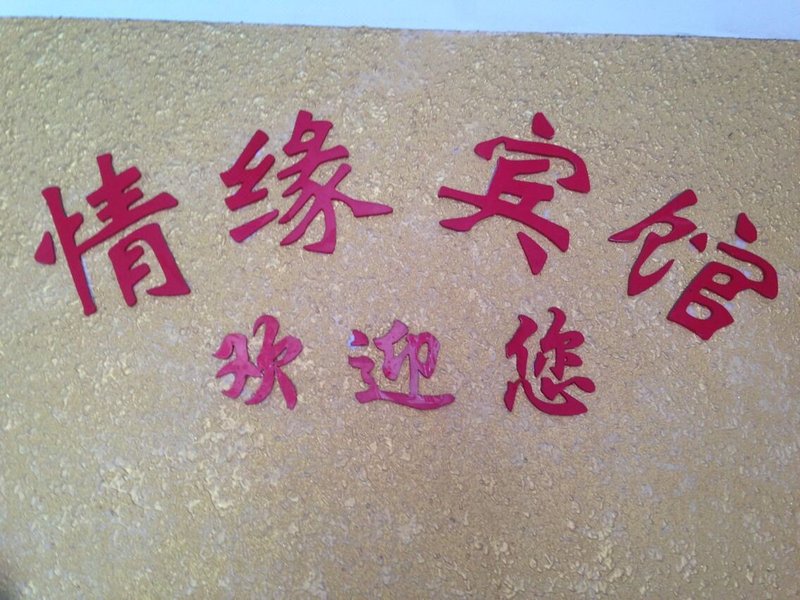 情缘宾馆
欢迎您